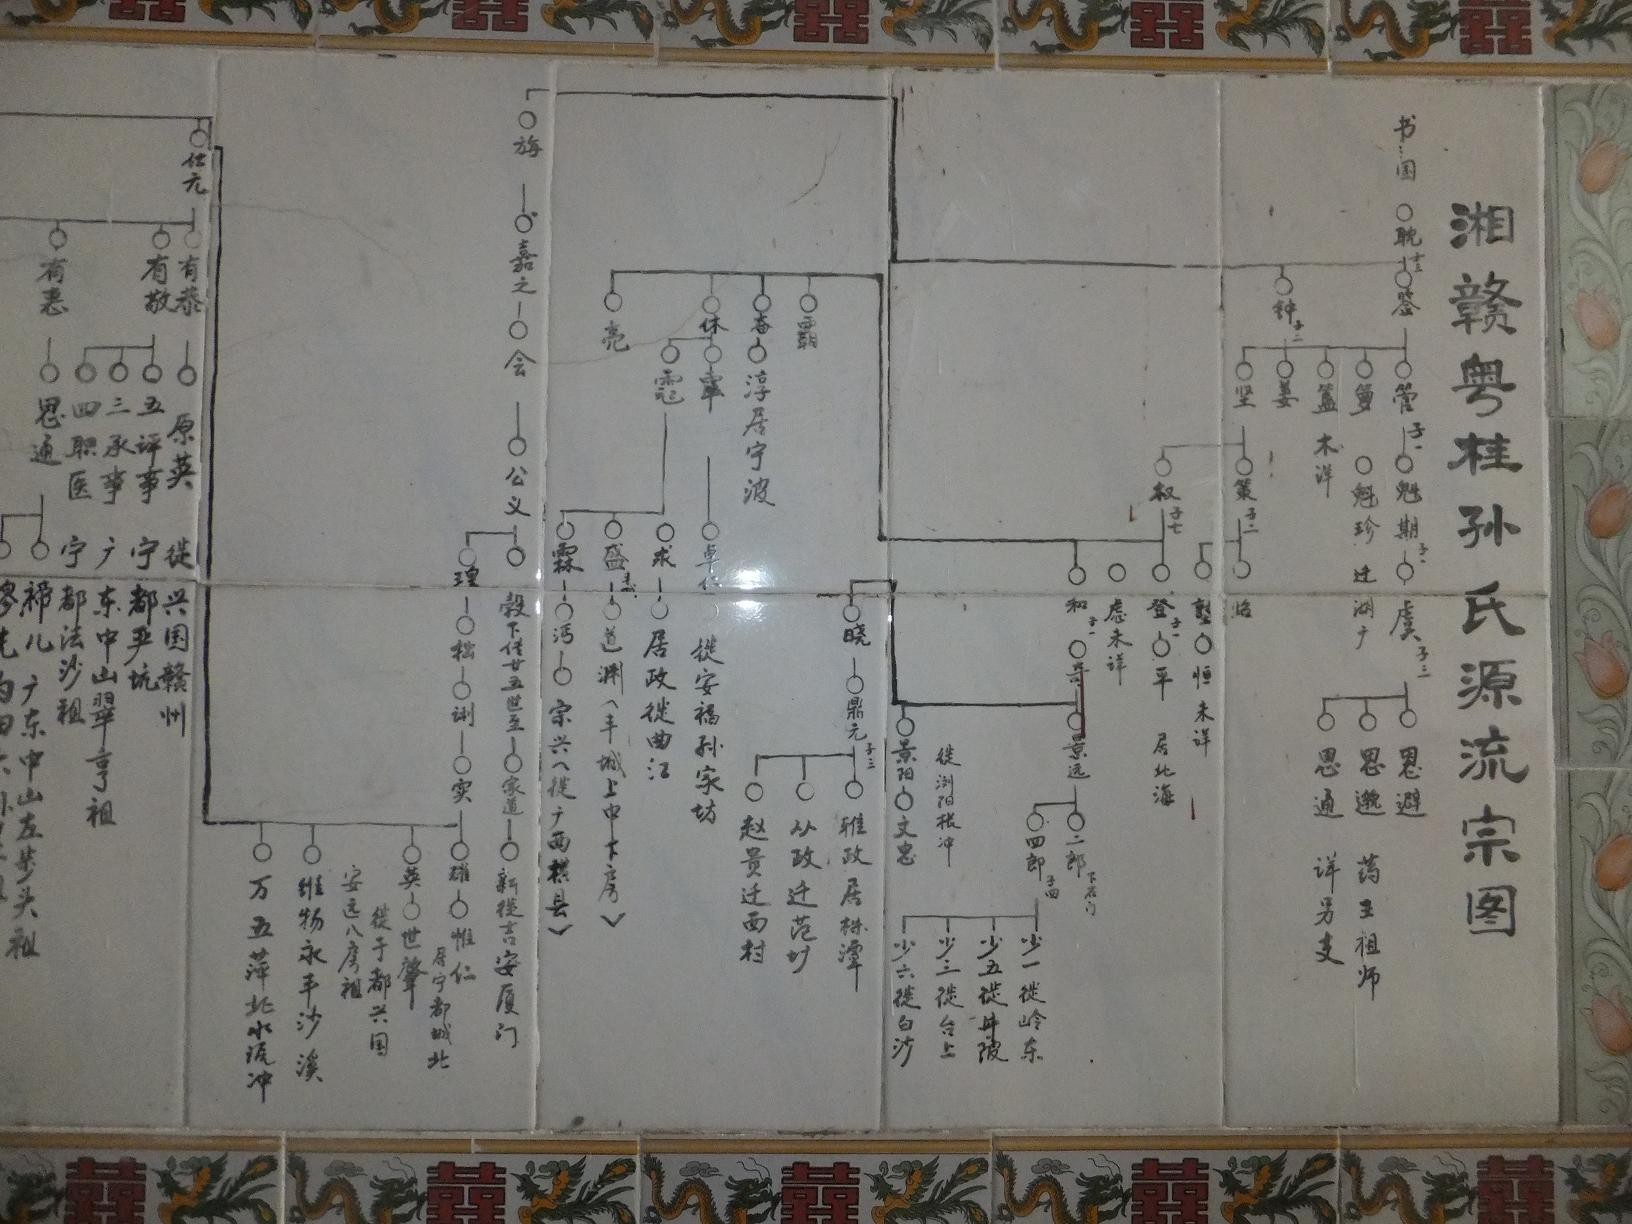 湘赣粤桂孙氏源流宗图
书国
耽
鉴
钟
子二
管
子一
箕
笾
姜
坚
木详
魁期
魁珍
迁湖广
虞
子三
思避
思邈
思通
药王祖师
详另支
策
子二
权
子七
怡
恒未详
登
子一
平
居北海
虑未详
和
子一
景远
二郎
下石门
四郎
子四
少一徙岭东
少五徙井陂
少三徙台上
少六徙白沙
景阳
文忠
徙浏阳板冲
霸
奋
淳居宁波
休
亮
卓仁
徙安福孙家坊
求
居政徙曲江
盛
道渊(丰城上中下房)
霖
沔
宗兴(徙广西横县)
晓
鼎元
子三
雅政居株潭
从政迁范圹
赵贵迁西村
旃
嘉之
会
公义
毂下传廿五世至
家道
新徙吉安厦门
理
松
诇
实
雄
惟仁
居宁都城北
英
世肇
徙于都兴国
安远八房祖
维物永丰沙溪
万五萍北水流冲
仕元
有恭
原英
徙兴国赣州
有敬
五评事
宁都严坑
三承事
广东中山翠亨祖
四职医
宁都法沙祖
有悫
思通
禘儿广东中山左步头祖